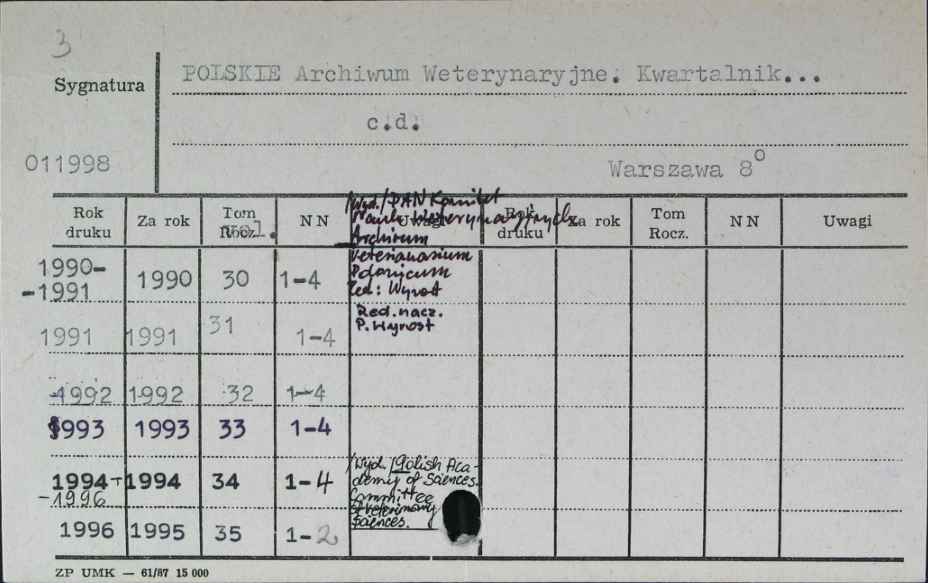 3
Sygnatura
POLSKIE Archiwum Weterynaryjne. Kwartalnik...
c.d.
011998
Warszawa 8°
Rok druku Za rok Tom Rocz. Vol. NN Uwagi Rok druku Za rok Tom Rocz. NN Uwagi
/Wyd./ PAN Komitet
Nauk Weterynaryjnych
Archivum
Veterinarium
Polonicum
Red: Wyrost
1990-
-1991 1990 30 1-4
Red. nacz.
P. Wyrost
1991 1991 31 1-4
1992 1992 32 1-4
1993 1993 33 1-4
/Wyd./ Polish Aca-
demy of Sciences.
Committee
of Veterinary
Sciences.
1994- 1994 34 1-4
-1996
1996 1995 35 1-2
ZP UMK — 61/87 15 000